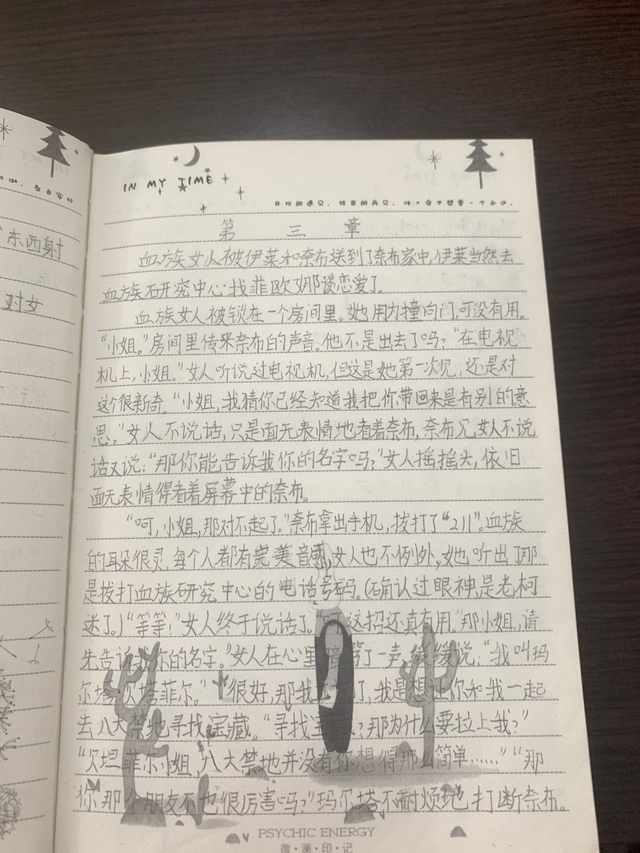 东西射
对女
IN MY TIME
第 三 章
血族女人被伊莱和奈布送到了奈布家中,伊莱当然去
血族研究中心找菲欧娜谈恋爱了.
血族女人被锁在一个房间里。她用力撞向门,可没有用。
“小姐。”房间里传来奈布的声音。他不是出去了吗?“在电视
机上,小姐。”女人听说过电视机,但这是她第一次见,还是对
这个很新奇。“小姐,我猜你已经知道我把你带回来是有别的意
思。”女人不说话,只是面无表情地看着奈布,奈布见女人不说
话又说:“那你能告诉我你的名字吗?”女人摇摇头,依旧
面无表情得看着屏幕中的奈布。
“呵,小姐,那对不起了。”奈布拿出手机,拨打了“211”。血族
的耳朵很灵,每个人都有完美音感,女人也不例外,她听出了那
是拨打血族研究中心的电话号码。(确认过眼神,是老柯
迷了。)“等等!”女人终于说话了。“这招还真有用。”那小姐,请
先告诉我你的名字。”女人在心里骂了一声,缓缓说:“我叫玛
尔塔·贝坦菲尔。”“很好,那我了,我是想让你和我一起
去八大禁地寻找宝藏。“寻找宝?那为什么要拉上我?”
“贝坦菲尔小姐,八大禁地并没有你想得那么简单……”“那
你那个朋友不也很厉害吗?”玛尔塔不耐烦地打断奈布。
PSYCHIC ENERGY
微·澜·印·记